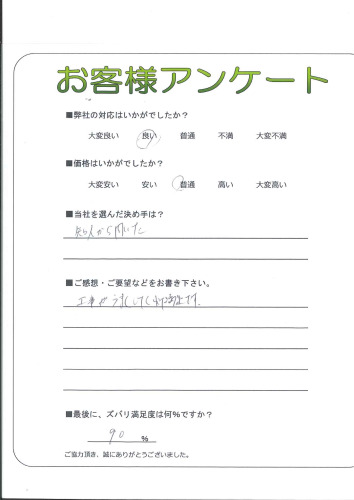 お客様アンケート
■弊社の対応はいかがでしたか？
大変良い 良い 普通 不満 大変不満
■価格はいかがでしたか？
大変安い 安い 普通 高い 大変高い
■当社を選んだ決め手は？
知人から聞いた
■ご感想・ご要望などをお書き下さい。
工事が
■最後に、ズバリ満足度は何%ですか？
90 %
ご協力頂き、誠にありがとうございました。